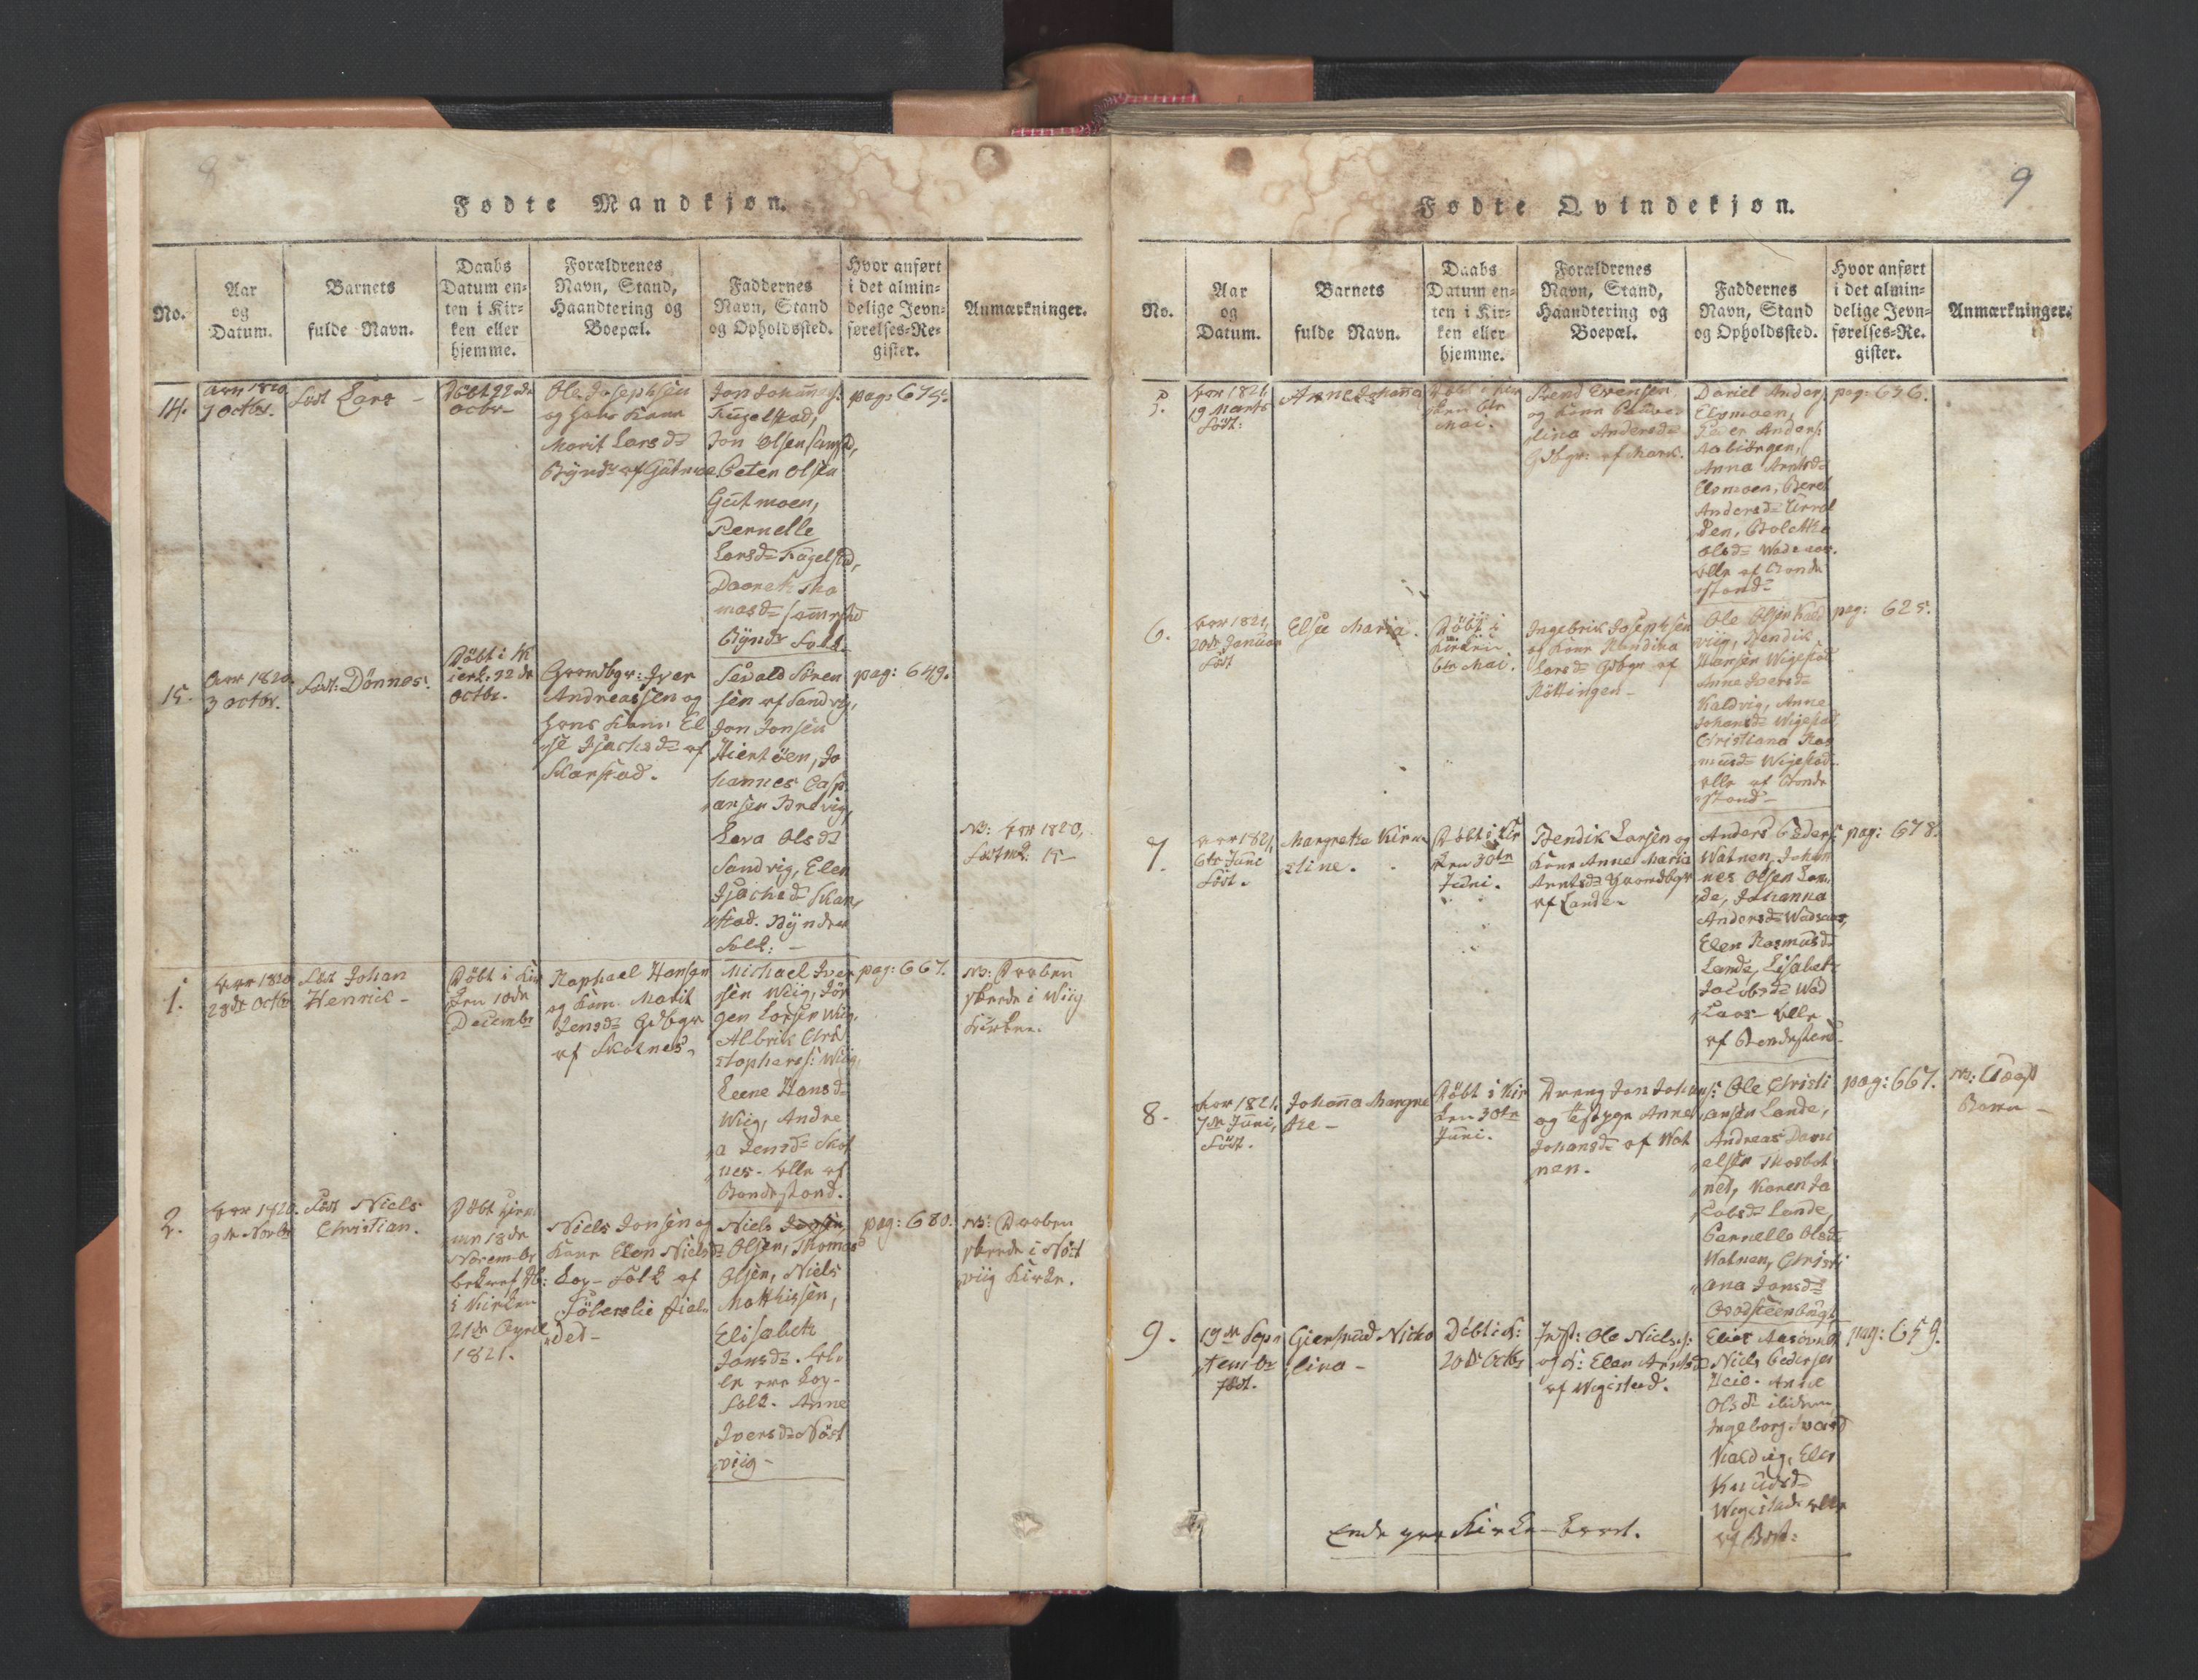 8
Fødte Mandkjøn.
No.
Aar
og
Datum.
Barnets
fulde Navn.
Daabs
Datum en-
ten i Kir-
ken eller
hjemme.
Forældrenes
Navn, Stand,
Haandtering og
Boepæl.
Faddernes
Navn, Stand
og Opholdssted.
Hvor anført
i det almin-
delige Jevn-
førelses-Re-
gister.
Anmærkninger.
14.
Aar 1820
Octbr.
Født Lars -
Døbt 22de
Octbr-
Ole Josephsen
og hans Kone
Marit Larsd
Jon Johannes:
Jon Olsen
Peter Olsen
Gutmoen,
Pernelle
Larsd
masd
Bønder Folk.
pag: 675.
15.
Aar 1820.
3 Octbr.
Født: Dønnes.
Døbt i K
ierk. 22de
Octbr.
Gaardbgr: Iver
Andreassen og
hans Kone El
se Isachsd af
Skarstad.
Sevald Søren
sen af Sandvig,
Jon Jonsen
Hiertøen, Jo
hannes Casp
arsen Bredvig,
Lera Olsd
Sandvig, Elen
Isachsd Skar
stad. Bønder
Folk: -
pag: 649.
NB: Aar 1820,
Født mk: 15-
1.
Aar 1820
28de Octbr
Født Johan
Henrik -
Døbt i Kir
ken 10de
Decembr
Raphael Hansen
og Kone Marit
Jensd Gdbgr
af Skotnes.
Michael Iver
sen Wiig, Jør
gen Larsen Wiig,
Albrik Chri
stophers: Wiig,
Leene Hansd
Wiig, Andre
a Jensd Skot
nes. Alle af
Bondestand.
pag: 667.
NB: Daaben
skeede i Wiig
Kirke.
2.
Aar 1820.
9de Novbr
Født Niels
Christian.
Døbt Hjem
me 18de
Novembr
bekræft. Db:
i Kirken
21de April
1821.
Niels Jonsen og
Kone Elen Nielsd
Lap-Folk af
det-
Niels Jonsen,
Olsen, Thomas
Olsen, Niels
Matthissen,
Elisabeth
Jonsd. Al
le ere Lap-
Folk. Anne
Iversd Nøst
viig-
pag: 680.
NB: Daaben
skeede i Nøst
viig Kirke.
9
Fødte Qvindekjøn.
No.
Aar
og
Datum.
Barnets
fulde Navn.
Daabs
Datum en-
ten i Kir-
ken eller
hjemme.
Forældrenes
Navn, Stand,
Haandtering og
Boepæl.
Faddernes
Navn, Stand
og Opholdssted.
Hvor anført
i det almin-
delige Jevn-
førelses-Re-
gister.
Anmærkninger.
5.
Aar 1821.
19 Marts
Født:
Anne Johanna
Døbt i Kir
ken 6te
Mai.
Evensen
og Kone Pauve
lina Andersd
Gdbgr: af Mark.
Daniel Anders
Elvmoen,
Peder Anders:
Aabiørgen,
Anna Arntsd
Elvmoen, Beret
Andersd
den, Bolettha
Olsd
Alle af Bonde
stand
pag: 646.
6.
Aar 1821,
20de Januar
Født
Elsee Maria.
Døbt i
Kirken
6te Mai.
Ingebrik Josephsen
og Kone Hendika
Larsd Gdbgr af
Røttingen-
Ole Olsen Kald
viig, Hendik
Hansen Wigestad
Anne Iversd
Kaldvig, Anne
Johansd Wigestad
Christiana Ras
musd Wigestad.
Alle af Bonde
stand-
pag: 625.
7.
Aar 1821,
6te Juni
Født.
Margrethe Kirn
stine.
Døbt i Kir
ken 30te
Juni.
Bendik Larsen og
Kone Anne Maria
Arntsd Gaardbgr
af Lande.
Anders Peders:
Watnen, Johan
nes Olsen Lan
de, Johanna
Andersd Wadsaas,
Elen Rasmusd
Lande, Lisabet
Jacobsd Wad
saas- Alle
af Bondestand-
pag: 678.
8.
Aar 1821.
7de Juni,
Født.
Johanna Margre
the -
Døbt i Kir
ken 30te
Juni.
Dreng Jon Johans:
og Anne
Johansd af Wat
nen.
Ole Christi
ansen Lande,
Andreas Dani
elsen Mosbot
net, Karen Ja
cobsd Lande,
Pernelle Olsd
Watnen, Christi
ana Jonsd
pag: 667.
NB: Uægt
Barn -
9.
19de Sep
tembr
Født.
Giertrud Nicko
lina -
Døbt i K:
20de Octbr
Inst: Ole Niels:
og K: Elen Arntsd
af Wigistad.
Elias
Niels Pedersen
Anne
Olsd
Ingeborg
Kaldvig, Elen
Knudsd
Wigistad Alle
af Bst:
pag: 659.
Ende paa Kirke-Aaret.